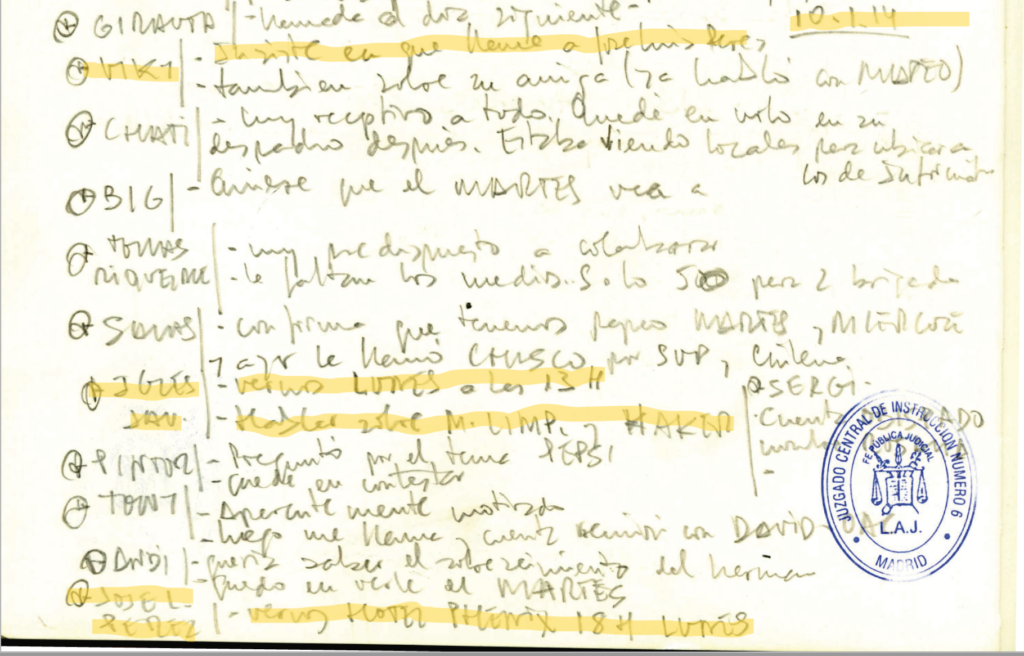 GIRAUTA - llamada al dia siguiente - 10.1.14
VIKI - Insiste en que llame a
- tambien sobre su amiga (ya habló con MATEO)
CHATI - muy receptivo a todo. Quedé en verlo en su
despacho después. Estaba viendo locales para ubicar a
los de
BIG - Quiere que el MARTES vea a
TOMAS - muy predispuesto a colaborar
RIQUELME - le faltan los medios. Solo 500 para 2 brigada
SALAS - confirma que tenemos papeo MARTES y MIERCOLE
y ayer le llamó CHUSCO por SUP, Chilena
IGLES - vernos LUNES a las 13 H
- Hablar sobre M. LIMP. y HAKER
SERGI -
- Cuenta
PINTOR - Preguntó por el tema PEPSI
- quedé en contestar
TONI - Aparentemente motivado
- luego me llama y cuenta reunión con DAVID
ANDI - quería saber el sobreseimiento del herman
- quedo en verle el MARTES
JOSE L. PEREZ - vernos HOTEL PHENIX 18 H LUNES
JUZGADO CENTRAL DE INSTRUCCION NUMERO 6
FE PUBLICA JUDICIAL
L.A.J.
MADRID